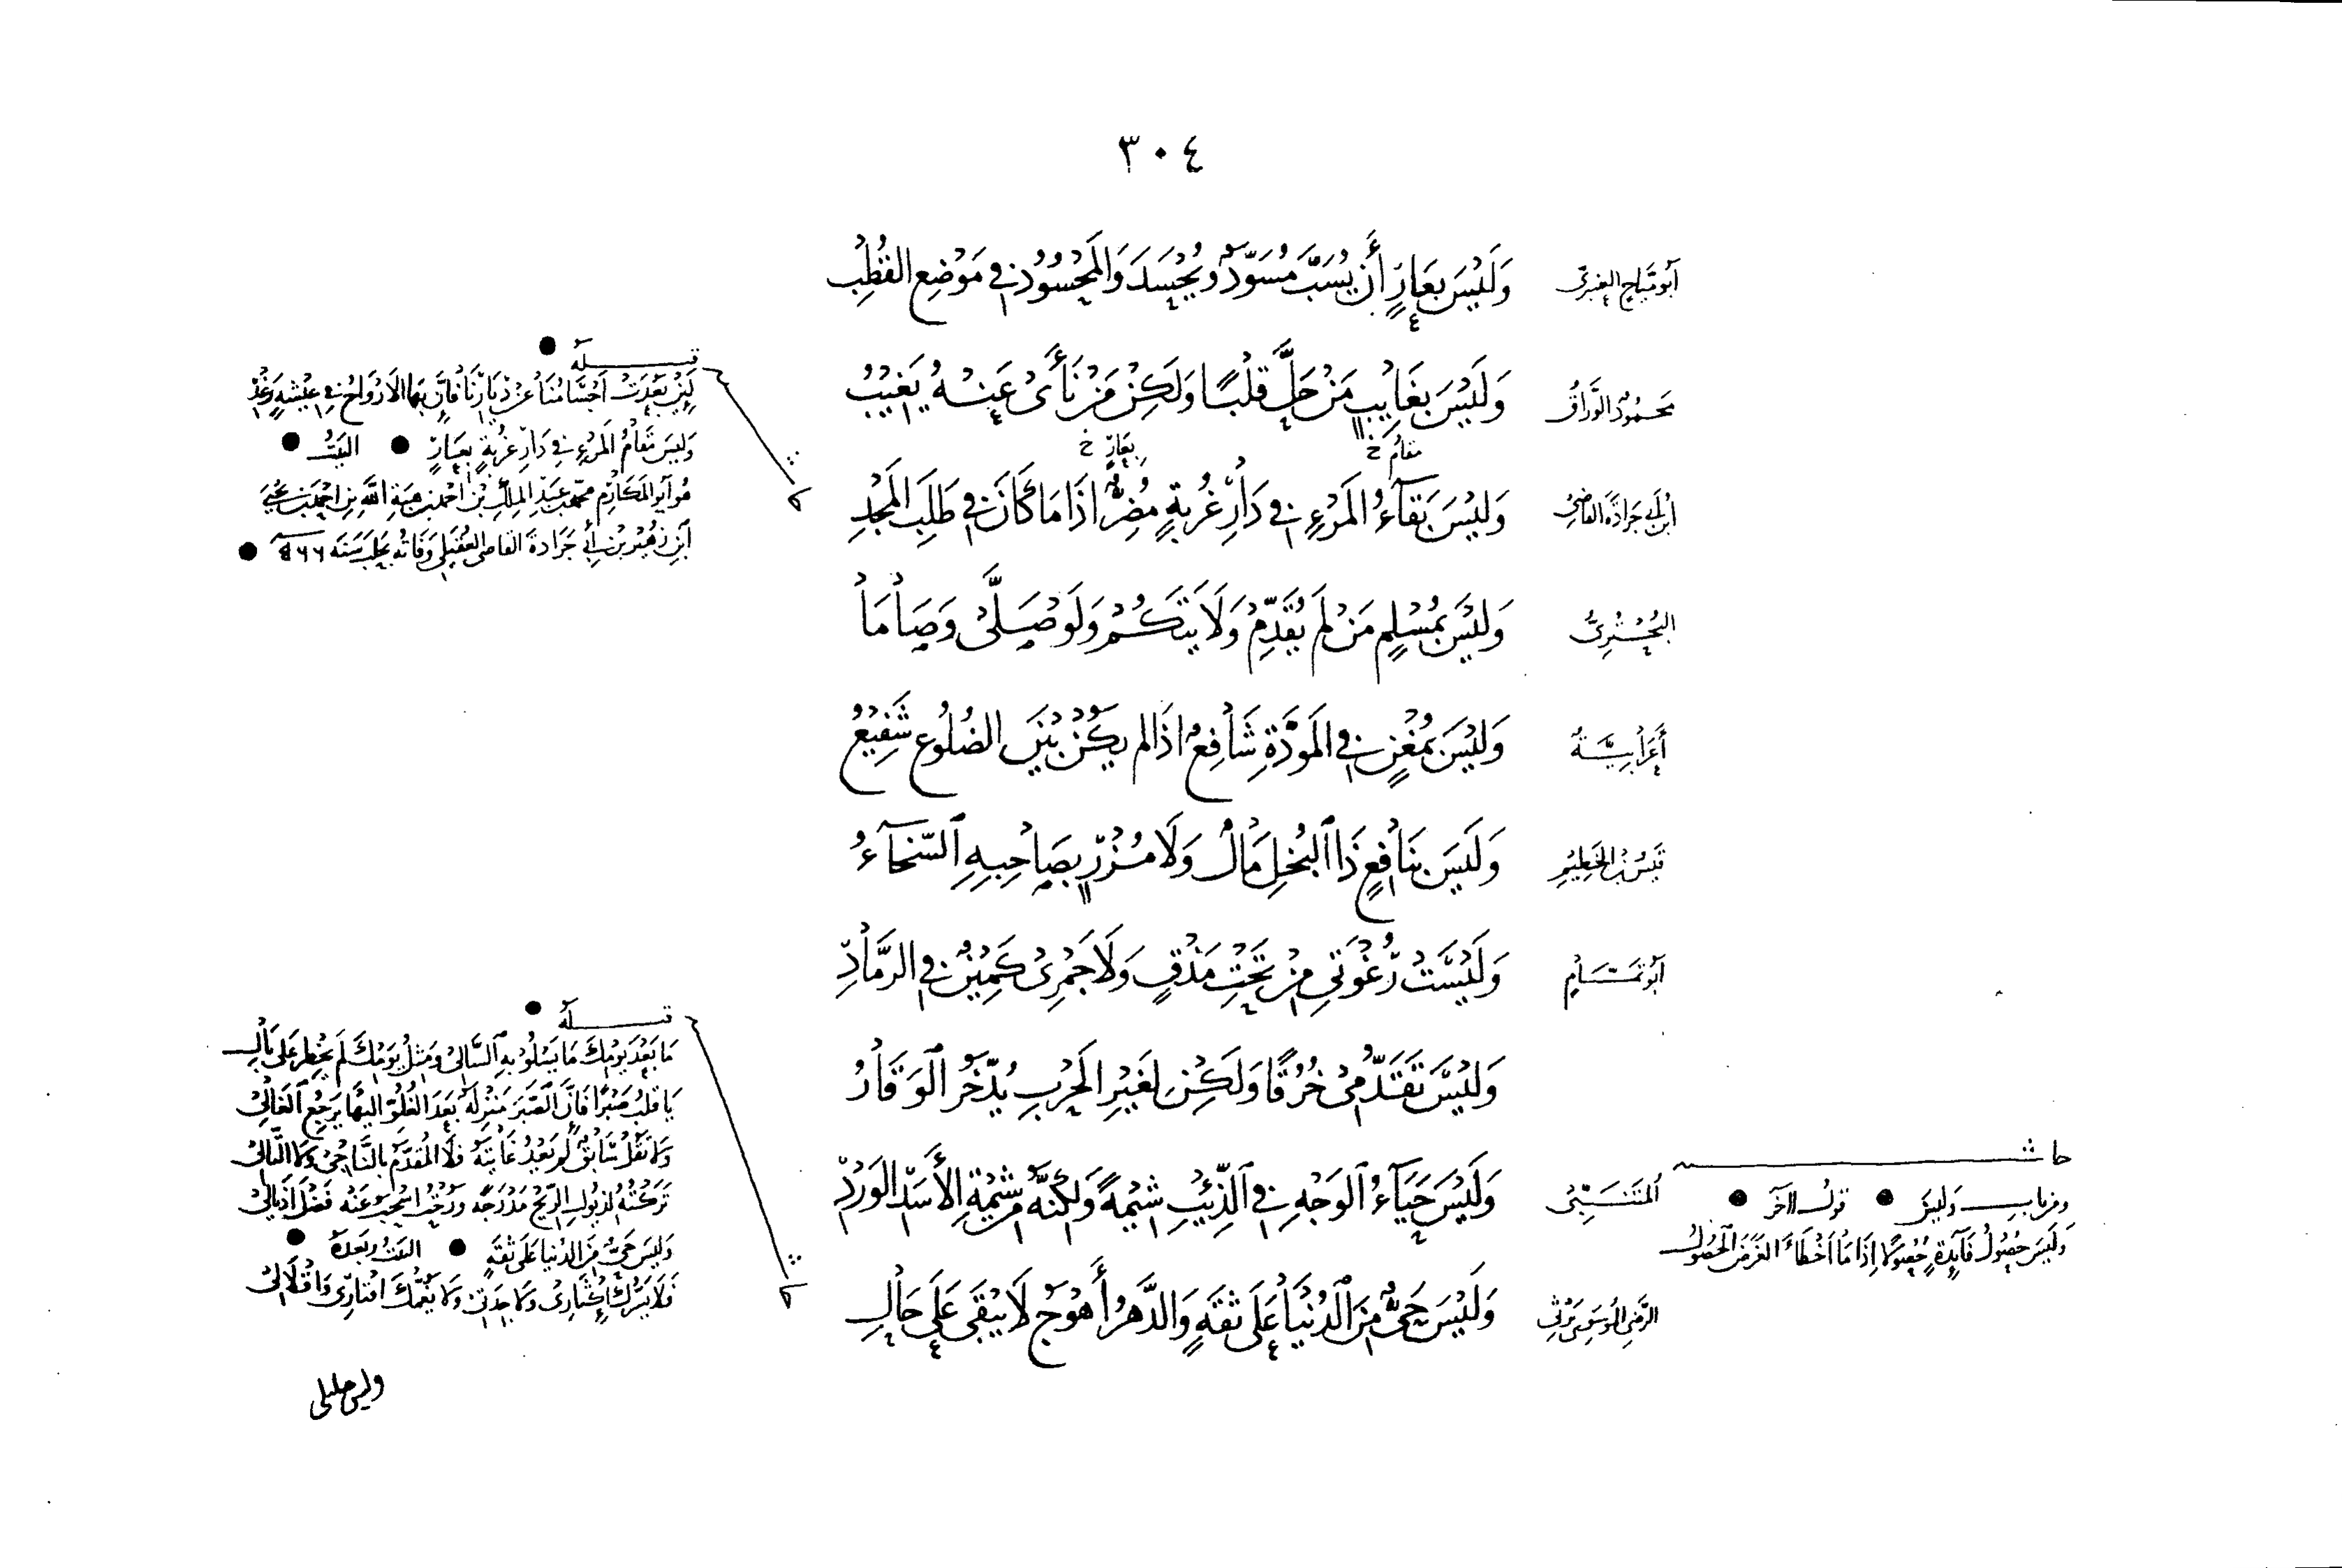 ٣٠٤
أبو مياح العنبري
وَلَيْسَ بِعَارٍ أَن يُسَبَّ مُسَوَّدٌ وَيُحْسَدَ وَالمَحْسُودُ فِي مَوْضِعِ القُطْبِ
محمود الوراق
وَلَيْسَ بِغَايِبٍ مَنْ حَلَّ قَلْبًا وَلَكِنْ مَنْ نَأَى عَنْهُ يَغِيْبُ
مقام خ بعار خ
ابن أبي جرادة القاضي
وَلَيْسَ بَقَآءُ المَرْءِ فِي دَارِ غُرْبَةٍ مُضِرٌّ اذَا مَا كَانَ فِي طَلَبِ المَجْدِ
البُحْتُرِيُّ
وَلَيْسَ بِمُسْلِمٍ مَنْ لَم يُقَدِّمْ وَلَايَتَكُمْ وَلَو صَلَّى وَصَامَا
أَعْرَابِيَّةٌ
وَلَيْسَ بِمُغْنٍ فِي المَوَدَّةِ شَافِعٌ اذَا لم يَكُنْ بَيْنَ الضُلُوعِ شَفِيْعُ
قيس بن الخطيم
وَلَيْسَ بِنَافِعٍ ذَا البُخْلِ مَالٌ وَلَا مُزْرٍ بِصَاحِبِهِ السَّخَآءُ
أبو تمام
وَلَيْسَتْ رُغْوَتِي مِنْ تَحْتِ مَذْقٍ وَلَا جَمْرِي كَمِيْنٌ فِي الرَّمَادِ
وَلَيْسَ تَقَدُّمِي خُرْقًا وَلَكِنْ لِغَيْرِ الحَرْبِ يُدَّخَرُ الوَقَارُ
المتنبي
وَلَيْسَ حَيَآءُ الوَجْهِ فِي الذِّئْبِ شِيْمَةً وَلَكِنَّهُ مِنْ شِيْمَةِ الأَسَدِ الوَرْدِ
الرضي الموسوي يرثي
وَلَيْسَ حَيٌّ مِنَ الدُنْيَا عَلَى ثِقَةٍ وَالدَّهْرُ أَهْوَجُ لَا يَبْقَى عَلَى حَالِ
قبله
لَئِنْ بَعُدَتْ أَجْسَامُنَا عَنْ دِيَارِنَا فَإِنَّ بِهَا الأَرْوَاحُ فِي عِيْشَةٍ رَغْدِ
وَلَيسَ مَقَامُ المَرْءِ فِي دَارِ غُرْبَةٍ بِعَارٍ البَيْتُ
هو أبو المكارم محمد بن عبد الملك بن أحمد بن هبة الله بن أحمد بن يحيى
ابن زهير بن أبي جرادة القاضي العقيلي وفاته بحلب سنة ٥٦٦
قبله
مَا بَعْدَ يَوْمِكَ مَا يَسْلُو بِهِ السَّالِي وَمِثْلُ يَوْمِكَ لَم يَخْطِر عَلَى بَالِ
يَا قَلْبُ صَبْرًا فَإِنَّ الصَبْرَ مَنْزِلَةٌ بَعْدَ الغُلُوِّ اليْهَا يَرْجِعُ الغَالِي
وَلَا تَقُلْ سَابِقٌ لَم يَعْدُ غَايَتَهُ فَلَا المُقَدَّمُ بِالنَّاجِي وَلَا التَّالِي
تَرَكْتُهُ لِذُيُولِ الرِّيْحِ مَدْرَجَةً وَرُحْتُ اسْحَبُ عَنْهُ فَضْلَ اَذْيَالِي
وَلَيْسَ حَيٌّ مِنَ الدُنيَا عَلَى ثِقَةٍ البيت وبعده
فَلَا يَسُرُّكَ إِكْثَارِي وَلَا جِدَتِي وَلَا يَغُمُّكَ اقْتَارِي وَاقْلَالِي
حاشـ
ومن باب وليس قول الآخر
وَلَيسَ حُصُولُ فَآيِدَةٍ حُصُولًا اِذَا مَا أَخْطَاءَ الغَرَضَ الحُصُولُ
وليس خليلي